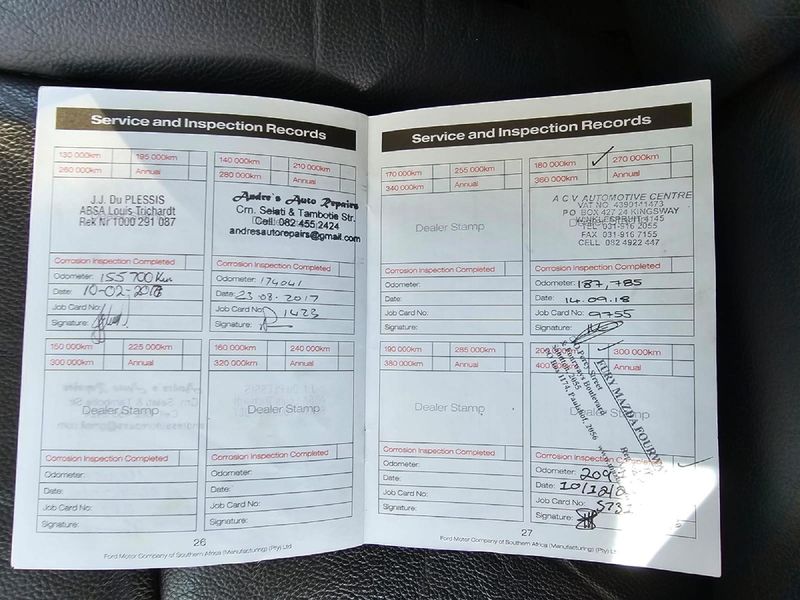 Service and Inspection Records
130 000km 195 000km
260 000km Annual
J.J. Du PLESSIS
ABSA Louis Trichardt
Rek Nr 1000 291 087
Corrosion Inspection Completed
Odometer: 155 700 Km
Date: 10-02-
Job Card No:
Signature:
140 000km 210 000km
280 000km Annual
Andre's Auto Repairs
Crn. Selati & Tambotie Str.
Cell: 082 455 2424
andresautorepairs@gmail.com
Corrosion Inspection Completed
Odometer: 174041
Date: 23.08.2017
Job Card No: 1423
Signature:
150 000km 225 000km
300 000km Annual
Dealer Stamp
Corrosion Inspection Completed
Odometer:
Date:
Job Card No:
Signature:
160 000km 240 000km
320 000km Annual
Dealer Stamp
Corrosion Inspection Completed
Odometer:
Date:
Job Card No:
Signature:
26
Ford Motor Company of Southern Africa (Manufacturing) (Pty) Ltd
Service and Inspection Records
170 000km 255 000km
340 000km Annual
Dealer Stamp
Corrosion Inspection Completed
Odometer:
Date:
Job Card No:
Signature:
180 000km 270 000km
360 000km Annual
A C V AUTOMOTIVE CENTRE
VAT NO. 4390141473
P O BOX 427 24 KINGSWAY
WINKLESPRUIT 4145
TEL: 031-916 2055
FAX 031-916 7155
CELL 082 4922 447
Corrosion Inspection Completed
Odometer: 187,785
Date: 14.09.18
Job Card No: 9755
Signature:
190 000km 285 000km
380 000km Annual
Dealer Stamp
Corrosion Inspection Completed
Odometer:
Date:
Job Card No:
Signature:
300 000km
Annual
Dealer Stamp
FURY MAZDA
Percy Street
& Fourways Boulevard
2055
PO Box 1174, Paulshof, 2056
Corrosion Inspection
Odometer: 209
Date: 10/12/
Job Card No: 573
Signature:
27
Ford Motor Company of Southern Africa (Manufacturing) (Pty) Ltd